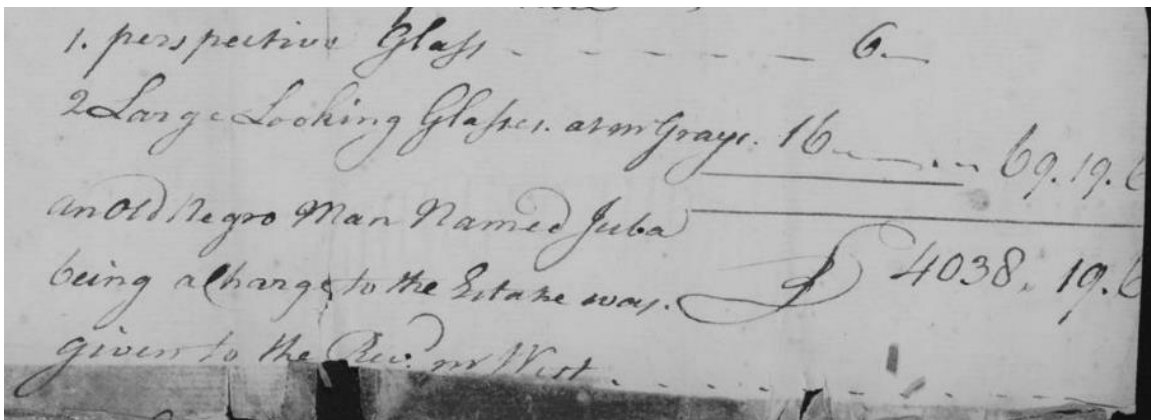 1. perspective Glass - - - - - - 6 —
2 Large Looking Glasses. at mr Grays. 16 — — 69. 19. 6
an Old Negro Man Named Juba
being a Charge to the Estate was. £ 4038. 19. 6
given to the Revd. mr West. - - - - - - -